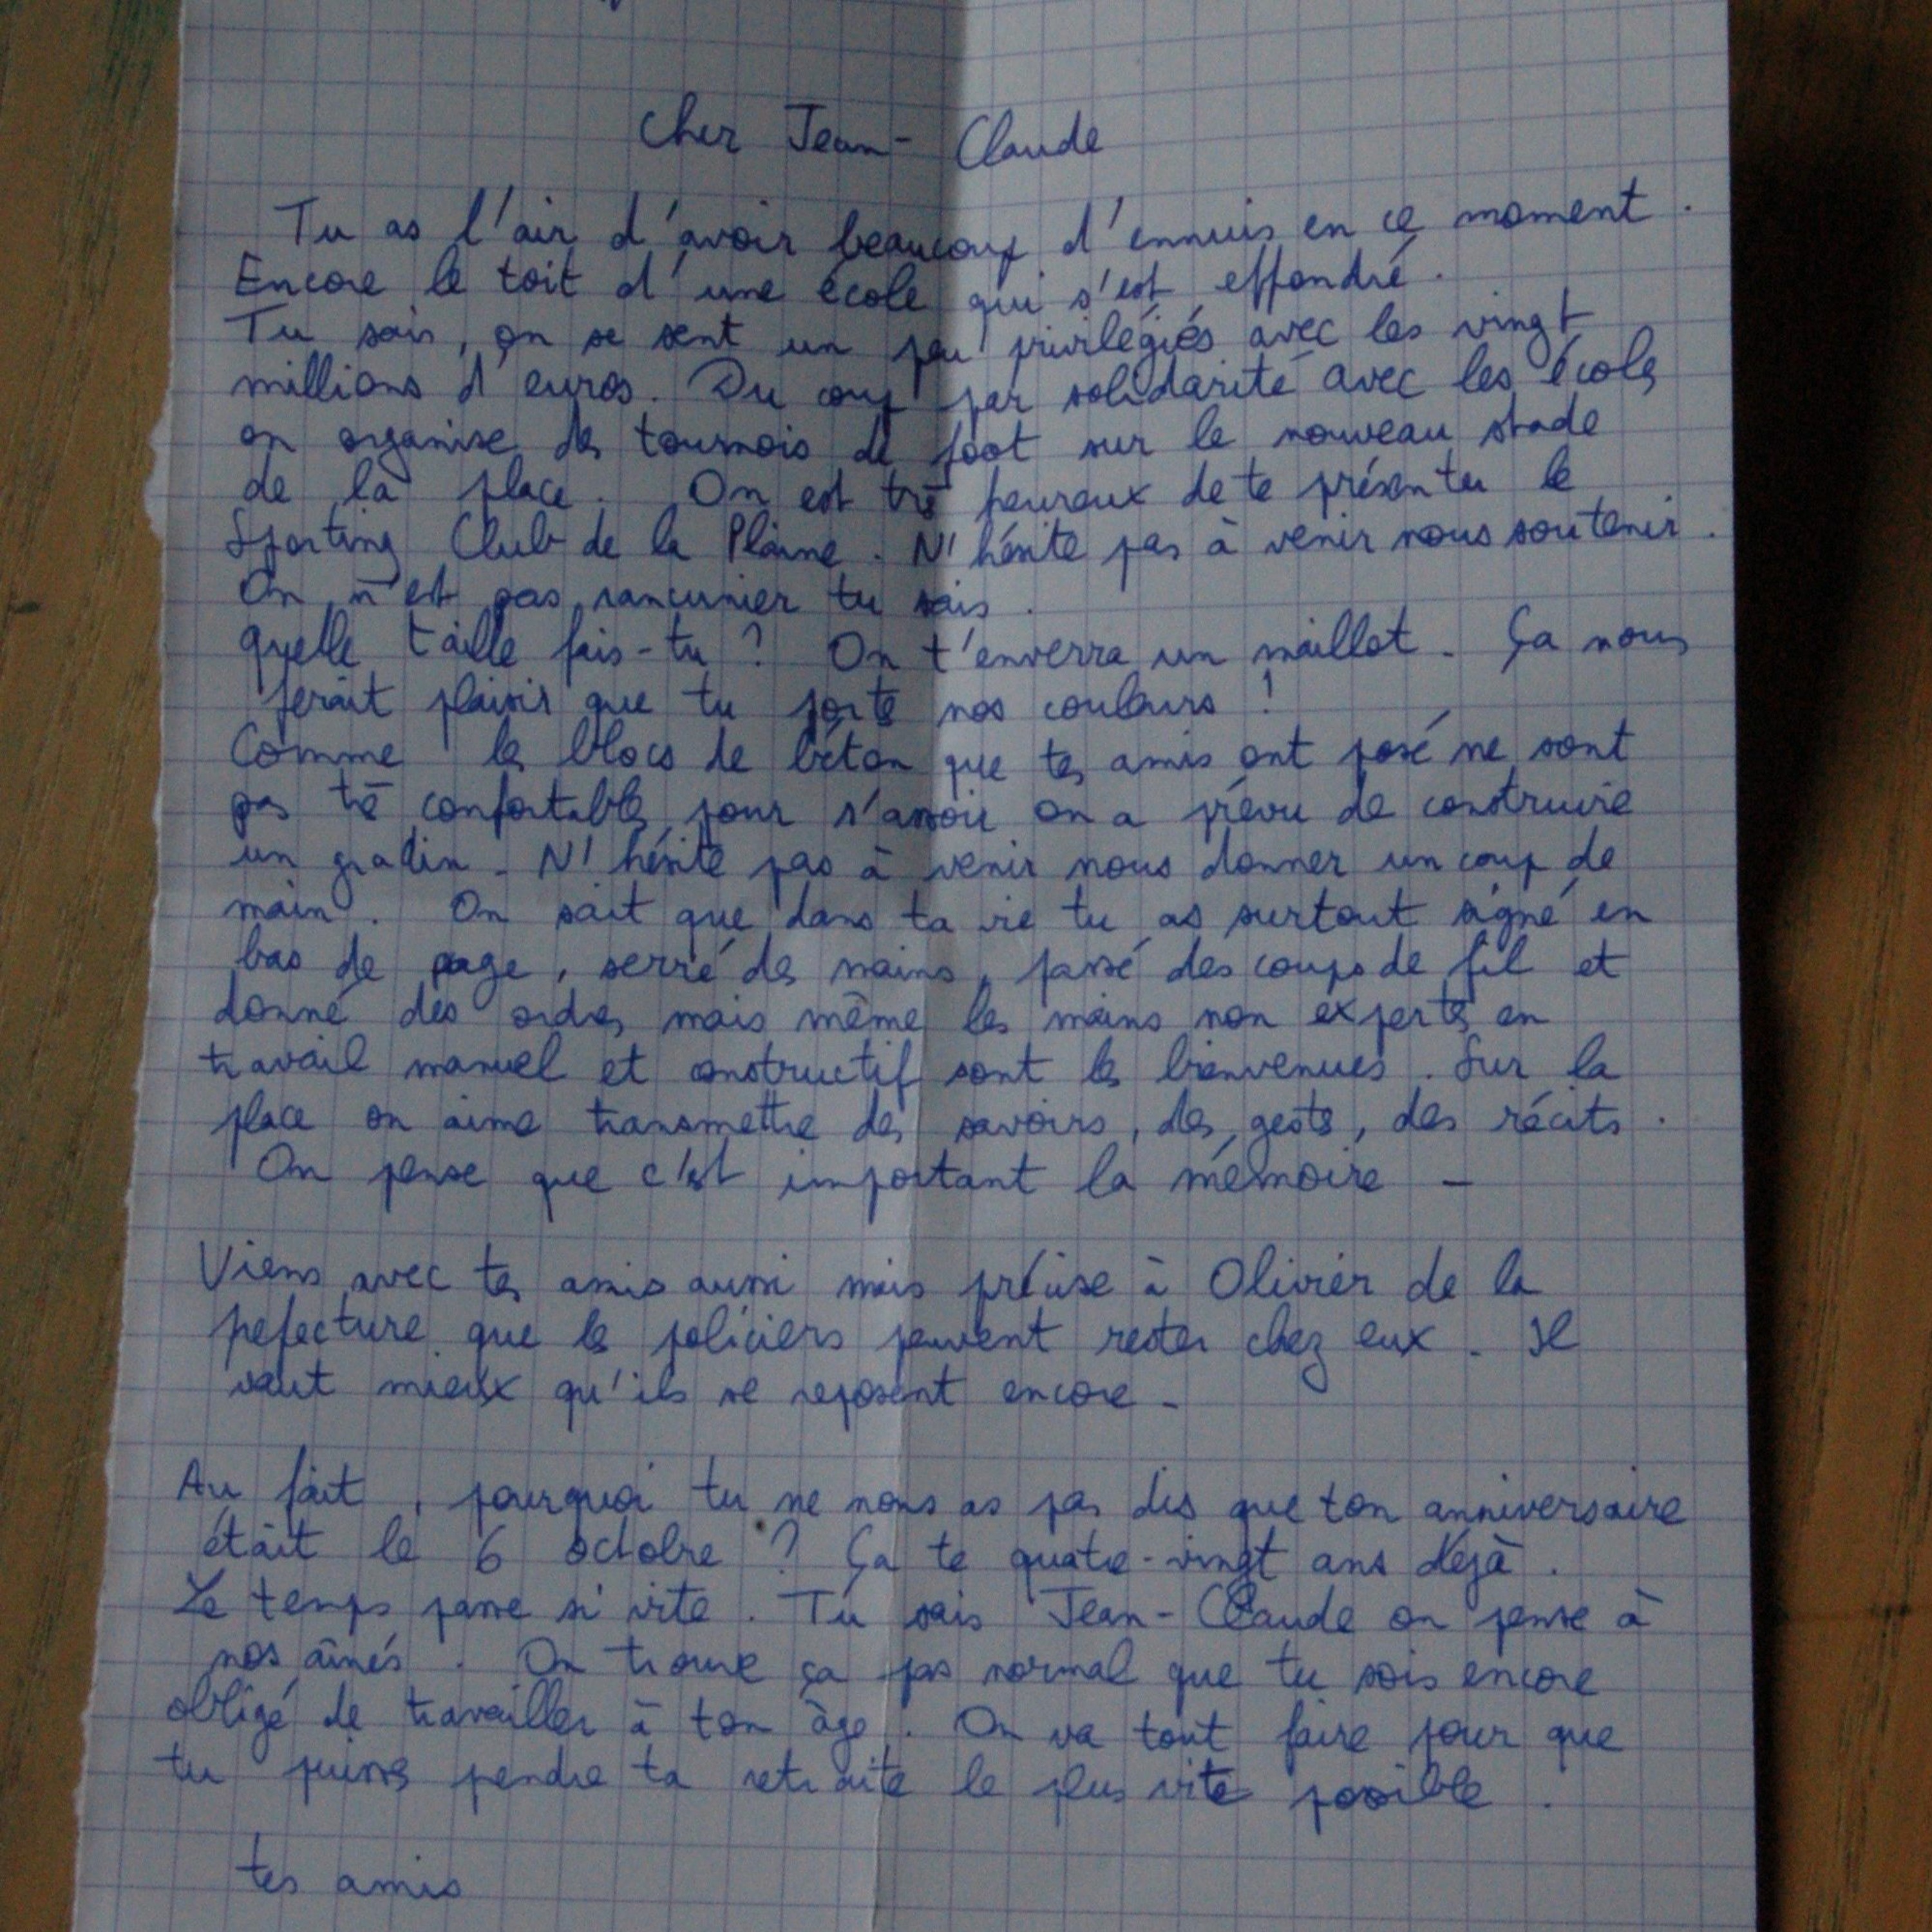 Cher Jean-Claude
Tu as l'air d'avoir beaucoup d'ennuis en ce moment.
Encore le toit d'une école qui s'est effondré.
Tu sais, on se sent un peu privilégiés avec les vingt
millions d'euros. Du coup par solidarité avec les écoles
on organise des tournois de foot sur le nouveau stade
de la place. On est très heureux de te présenter le
Sporting Club de la Plaine. N'hésite pas à venir nous soutenir.
On n'est pas rancunier tu sais.
quelle taille fais-tu ? On t'enverra un maillot. Ça nous
ferait plaisir que tu porte nos couleurs !
Comme les blocs de béton que tes amis ont posé ne sont
pas très confortables pour s'assoir on a prévu de construire
un gradin. N'hésite pas à venir nous donner un coup de
main. On sait que dans ta vie tu as surtout signé en
bas de page, serré des mains, passé des coups de fil et
donné des ordres mais même les mains non expertes en
travail manuel et constructif sont les bienvenues. Sur la
place on aime transmettre des savoirs, des gestes, des récits.
On pense que c'est important la mémoire -
Viens avec tes amis aussi mais précise à Olivier de la
prefecture que les policiers peuvent rester chez eux. Il
vaut mieux qu'ils se reposent encore -
Au fait, pourquoi tu ne nous as pas dis que ton anniversaire
était le 6 octobre ? Ça te quatre-vingt ans déjà.
Le temps passe si vite. Tu sais Jean-Claude on pense à
nos aînés. On trouve ça pas normal que tu sois encore
obligé de travailler à ton âge. On va tout faire pour que
tu puisses prendre ta retraite le plus vite possible.
tes amis